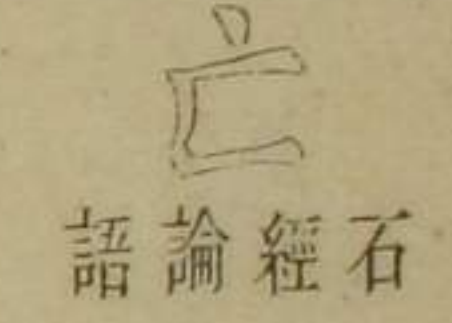 亡
石經論語